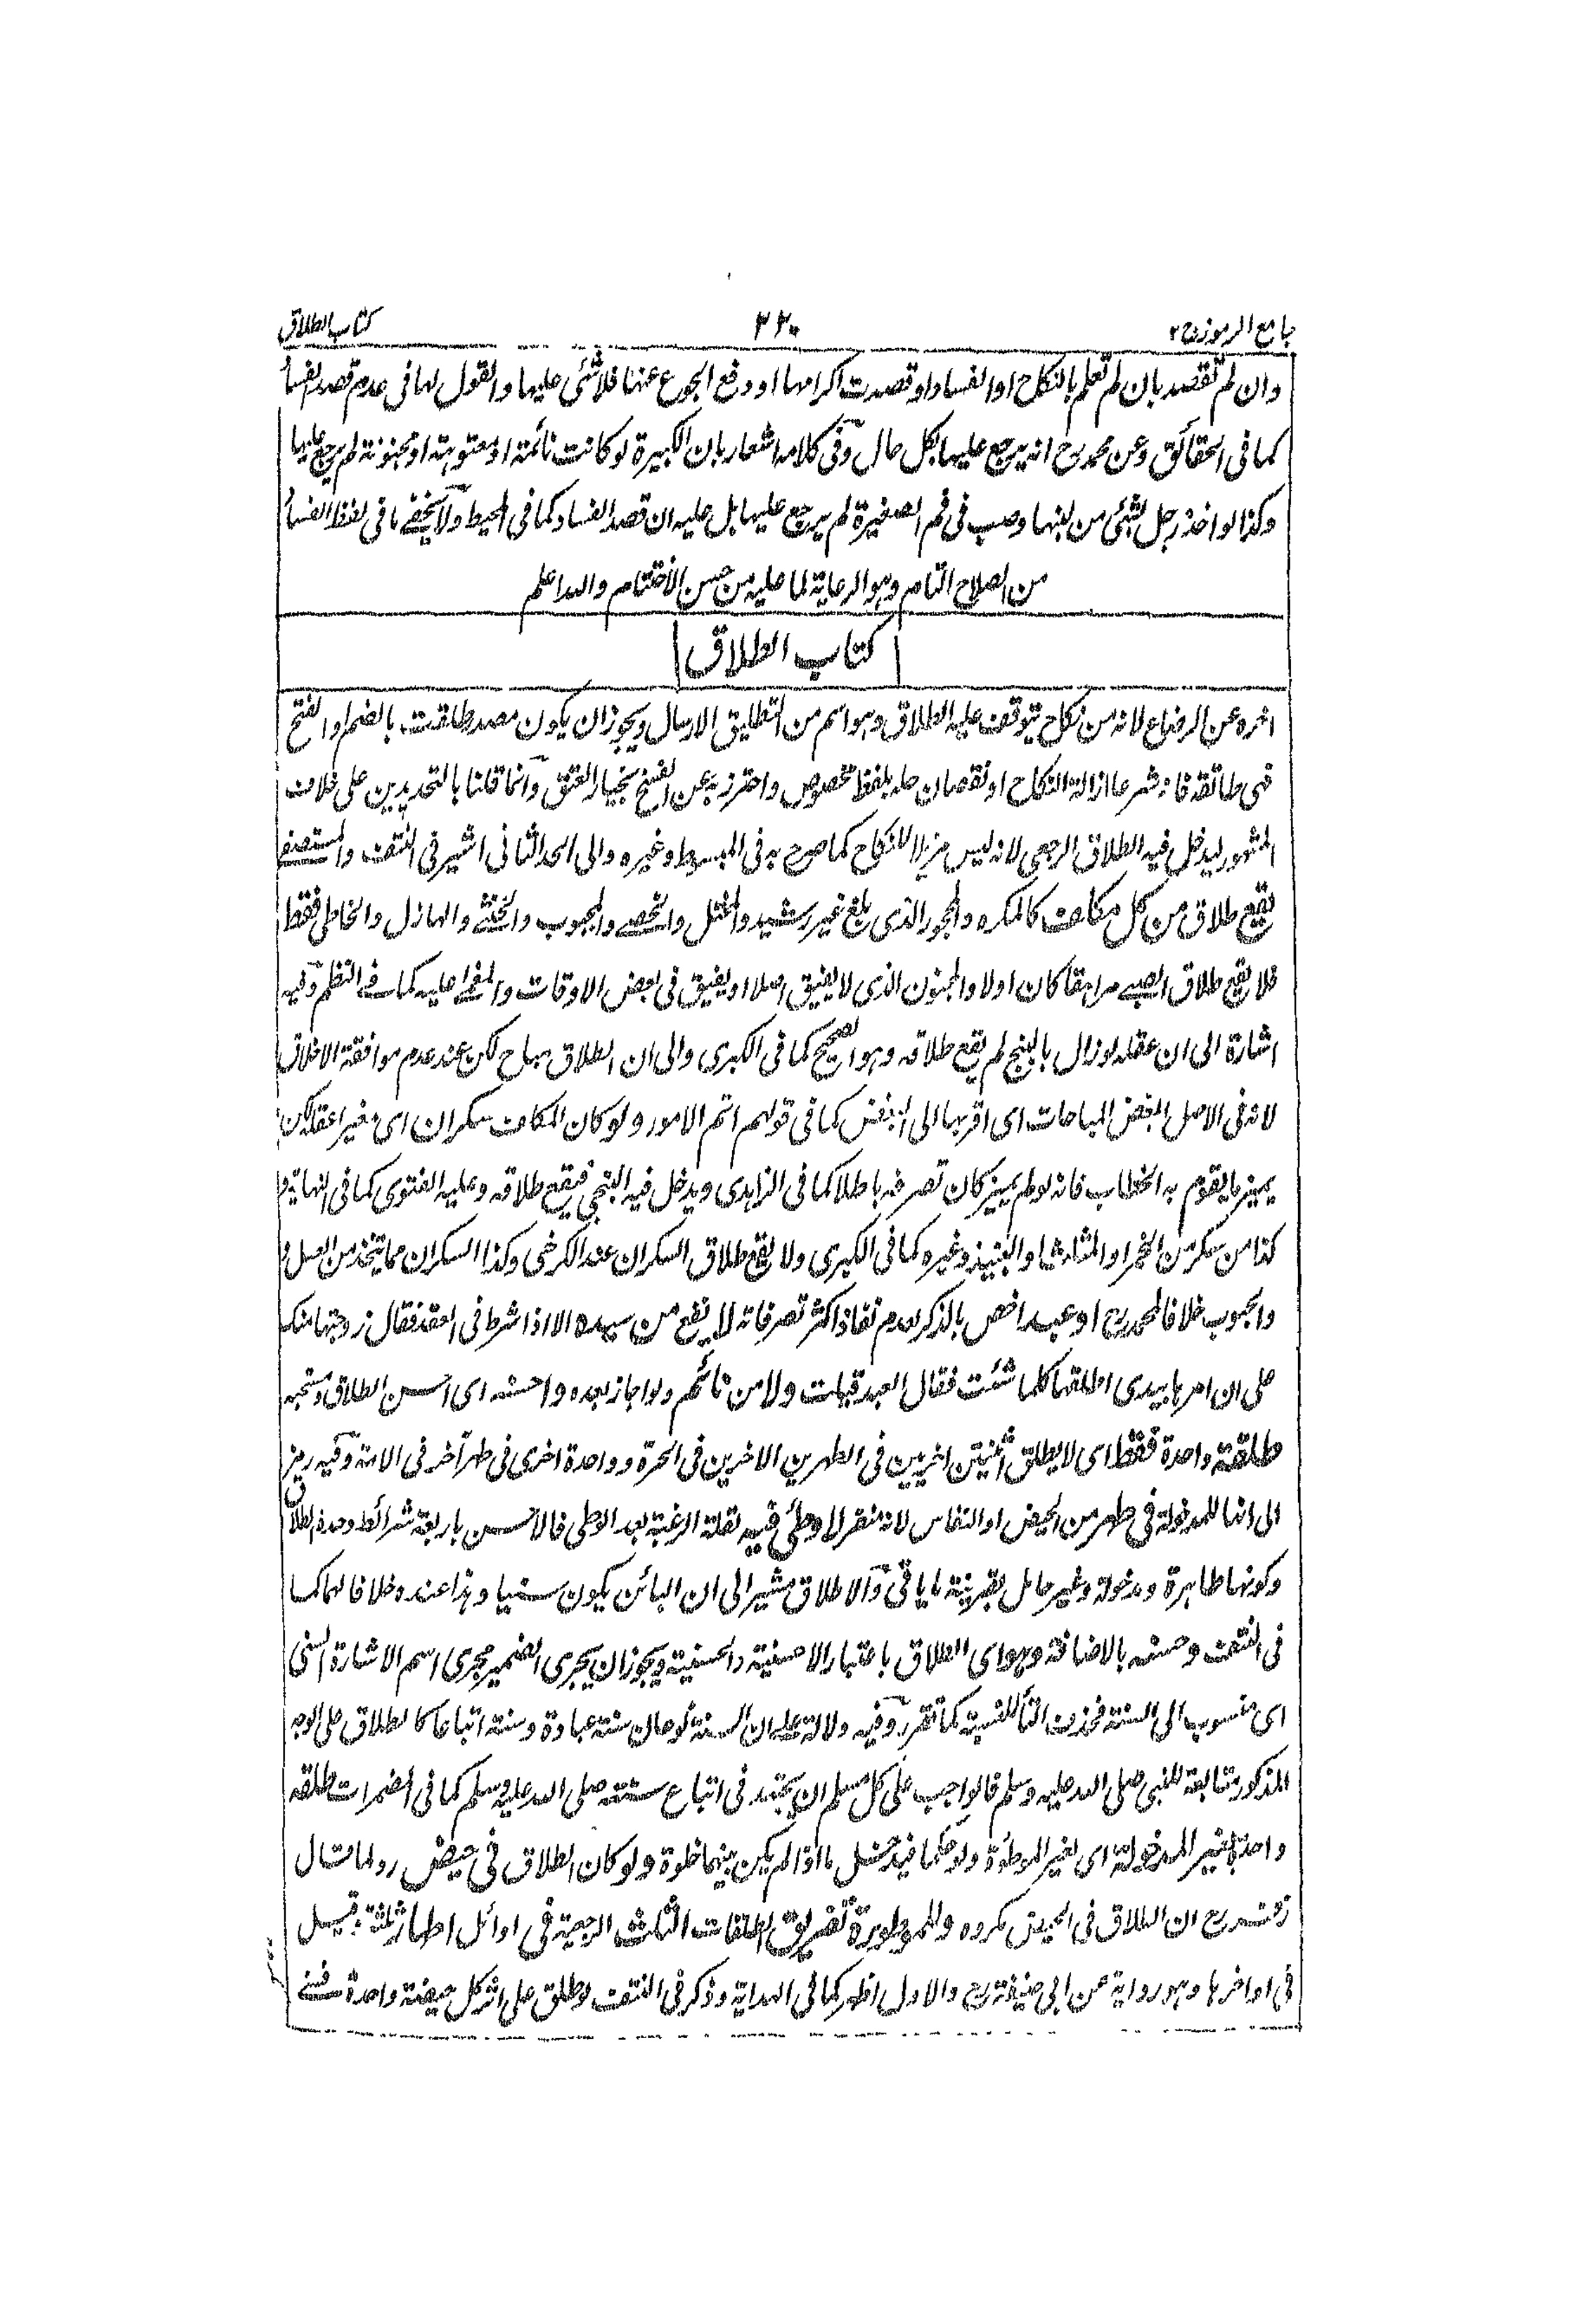 جامع الرموز ج ٢
٣٢٠
كتاب الطلاق
وان لم تقصد بان لم تعلم بالنكاح او الفساد او قصدت اكرامها او دفع الجوع عنها فلا شئ عليها والقول لها فى عدم قصد الفسا
كما فى الحقائق وعن محمد رح انه يرجع عليها بكل حال وفى كلامه اشعار بان الكبيرة لو كانت نائمة او معتوهة او مجنونة لم يرجع عليها
وكذا لو اخذ رجل لشئ من لبنها وصب فى فم الصغيرة لم يرجع عليها بل عليه ان قصد الفساد كما فى المحيط ولا يخفى ما فى لفظ الفسا
من اصلاح التام وهو الرعاية لما عليه من حسن الاختتام والله اعلم
كتاب الطلاق
اخره عن الرضاع لانه من نكاح يتوقف عليه الطلاق وهو اسم من التطليق الارسال ويجوز ان يكون مصدر طلقت بالضم او الفتح
فهى طالقة فانه شرعا ازالة النكاح او نقصان حله بلفظ مخصوص واحترز به عن الفسخ بخيار العتق وانما قلنا بالتحديدين على خلاف
المشهور ليدخل فيه الطلاق الرجعى لانه ليس مزيلا للنكاح كما صرح به فى المبسوط وغيره والى الحد الثانى اشير فى النتف والمستصفى
يقع طلاق من كل مكلف كالمكره والمحجور الذى بلغ غير رشيد والمختل والخصى والمجبوب والخنثى والهازل والخاطى فقط
فلا يقع طلاق الصبى مراهقا كان اولا والمجنون الذى لا يفيق اصلا او يفيق فى بعض الاوقات والمغمى عليه كما فى النظم وفيه
اشارة الى ان عقله لو زال بالبنج لم يقع طلاقه وهو الصحيح كما فى الكبرى والى ان الطلاق مباح لكن عند عدم موافقة الاخلاق
لانه فى الاصل ابغض المباحات اى اقربها الى البغض كما فى قولهم اتم الامور ولو كان المكلف سكران اى متغيرا عقله لكن
يميز ما يقوم به الخطاب فانه لو لم يميز كان تصرفه باطلا كما فى الزاهدى ويدخل فيه البنجى فيقع طلاقه وعليه الفتوى كما فى النهاية و
كذا من سكر من الخمر او المثلث او النبيذ وغيره كما فى الكبرى ولا يقع طلاق السكران عند الكرخى وكذا السكران مما يتخذ من العسل و
والحبوب خلافا لمحمد رح او عبدا خص بالذكر لعدم نفاذ اكثر تصرفاته لا يقع من سيده الا اذا شرط فى العقد فقال زوجتها منك
على ان امرها بيدى اطلقها كلما شئت فقال العبد قبلت ولا من نائم ولو اجاز بعده واحسنه اى احسن الطلاق ومستحبه
طلقة واحدة فقط اى لا يطلق ثنتين اخريين فى الطهرين الاخرين فى الحرة وواحدة اخرى فى طهر آخر فى الامة وفيه رمز
الى انها للمدخولة فى طهر من الحيض او النفاس لانه متفر لا وطئ فيه لقلة الرغبة بعد الوطى فالاحسن باربعة شرائط وحدة الطلاق
وكونها طاهرة ومدخولة وغير حامل بقرينة ما ياتى والاطلاق مشير الى ان البائن يكون سنيا وهذا عنده خلافا لهما كما
فى النتف وحسنه بالاضافة وهو اى الطلاق باعتبار الاحسنية والحسنية ويجوز ان يجرى الضمير مجرى اسم الاشارة السنى
اى منسوب الى السنة فحذف التاء للنسبة كما تقرر وفيه دلالة على ان السنة نوعان سنة عبادة وسنة اتباعا كالطلاق على الوجه
المذكور متابعة للنبى صلى الله عليه وسلم فالواجب على كل مسلم ان يجتهد فى اتباع سنته صلى الله عليه وسلم كما فى المضمرات طلقة
واحدة لغير المدخولة اى لغير الموطوءة ولو حكما فيدخل ما اذا لم يكن بينهما خلوة ولو كان الطلاق فى حيض رد لما قال
زفر رح ان الطلاق فى الحيض مكروه وللموطوءة تفريق الطلقات الثلث الرجعية فى اوائل اطهار ثلثة قيل
فى اواخرها وهو رواية عن ابى حنيفة رح والاول اظهر كما فى الهداية وذكر فى النتف لو طلق على اثر كل حيضة واحدة فسنى